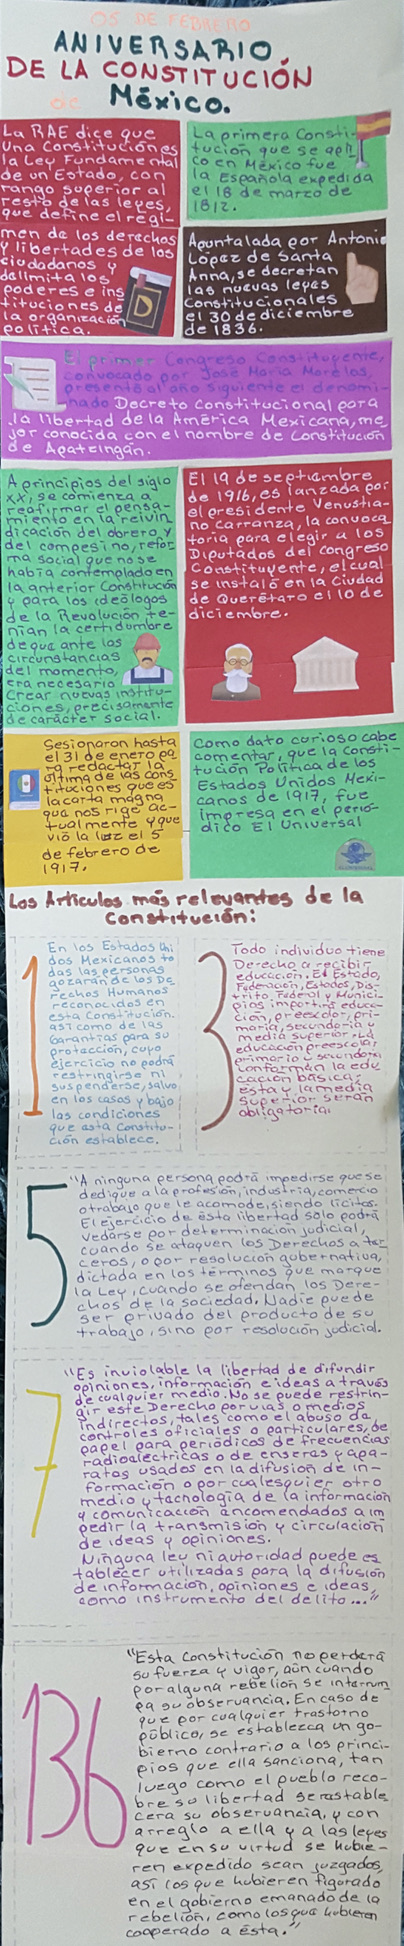 05 DE FEBRERO
ANIVERSARIO
DE LA CONSTITUCIÓN
de México.
La RAE dice que
una constituciones
la Ley Fundamental
de un Estado, con
rango superior al
resto de las leyes,
que define el régi-
men de los derechos
y libertades de los
ciudadanos y
delimita los
poderes e ins
tituciones de
la organización
política.
La primera Consti-
tución que se apli
co en México fue
la Española expedida
el 18 de marzo de
1812.
Apuntalada por Antonio
López de Santa
Anna, se decretan
las nuevas leyes
Constitucionales
el 30 de diciembre
de 1836.
El primer Congreso Constituyente,
convocado por José María Morelos,
presenta al año siguiente el denomi-
nado Decreto constitucional para
la libertad de la América Mexicana, me
jor conocida con el nombre de Constitución
de Apatzingán.
A principios del siglo
XX, se comienza a
reafirmar el pensa-
miento en la reivin
dicación del obrero y
del campesino, refor
ma social que no se
había contemplado en
la anterior Constitución
y para los ideólogos
de la Revolución te-
nían la certidumbre
de que ante las
circunstancias
del momento,
era necesario
Crear nuevas institu-
ciones, precisamente
de carácter social.
El 19 de septiembre
de 1916, es lanzada por
el presidente Venustia-
no Carranza, la convoca
toria para elegir a los
Diputados del congreso
Constituyente, el cual
se instaló en la Ciudad
de Querétaro el 10 de
diciembre.
Sesionaron hasta
el 31 de enero pa
ra redactar la
última de las cons
tituciones que es
la carta magna
que nos rige ac-
tualmente y que
vió la luz el 5
de febrero de
1917.
Como dato curioso cabe
comentar, que la Consti-
tución Política de los
Estados Unidos Mexi-
canos de 1917, fue
impresa en el perió-
dico El Universal
Los Artículos más relevantes de la
Constitución:
1
En los Estados Uni
dos Mexicanos to
das las personas
gozarán de los De
rechos Humanos
reconocidos en
esta Constitución.
así como de las
Garantías para su
protección, cuyo
ejercicio no podrá
restringirse ni
suspenderse, salvo
en los casos y bajo
las condiciones
que esta Constitu-
ción establece.
3
Todo individuo tiene
Derecho a recibir
educación. El Estado,
Federación, Estados, Dis-
trito Federal y Munici-
pios impartirá educa-
ción, preescolar, pri-
maria, secundaria y
media superior. La
educación preescolar,
primaria y secundaria
conforman la edu
cación básica;
esta y la media
superior serán
obligatoria.
5
"A ninguna persona podrá impedirse que se
dedique a la profesión, industria, comercio
o trabajo que le acomode, siendo lícitos.
El ejercicio de ésta libertad sólo podrá
vedarse por determinación judicial,
cuando se ataquen los Derechos a ter
ceros, o por resolución gubernativa,
dictada en los términos que marque
la Ley, cuando se ofendan los Dere-
chos de la sociedad. Nadie puede
ser privado del producto de su
trabajo, sino por resolución judicial.
7
"Es inviolable la libertad de difundir
opiniones, información e ideas a través
de cualquier medio. No se puede restrin-
gir este Derecho por vías o medios
indirectos, tales como el abuso de
controles oficiales o particulares, de
papel para periódicos de frecuencias
radioeléctricas o de enseres y apa-
ratos usados en la difusión de in-
formación o por cualesquier otro
medio y tecnología de la información
y comunicación encomendados a im
pedir la transmisión y circulación
de ideas y opiniones.
Ninguna ley ni autoridad puede es
tablecer utilizadas para la difusión
de información, opiniones e ideas,
como instrumento del delito..."
136
"Esta Constitución no perderá
su fuerza y vigor, aún cuando
por alguna rebelión se interrum
pa su observancia. En caso de
que por cualquier trastorno
público, se establezca un go-
bierno contrario a los princi-
pios que ella sanciona, tan
luego como el pueblo reco-
bre su libertad se restable
cerá su observancia, y con
arreglo a ella y a las leyes
que en su virtud se hubie-
ren expedido sean juzgados,
así los que hubieren figurado
en el gobierno emanado de la
rebelión, como los que hubieren
cooperado a ésta."